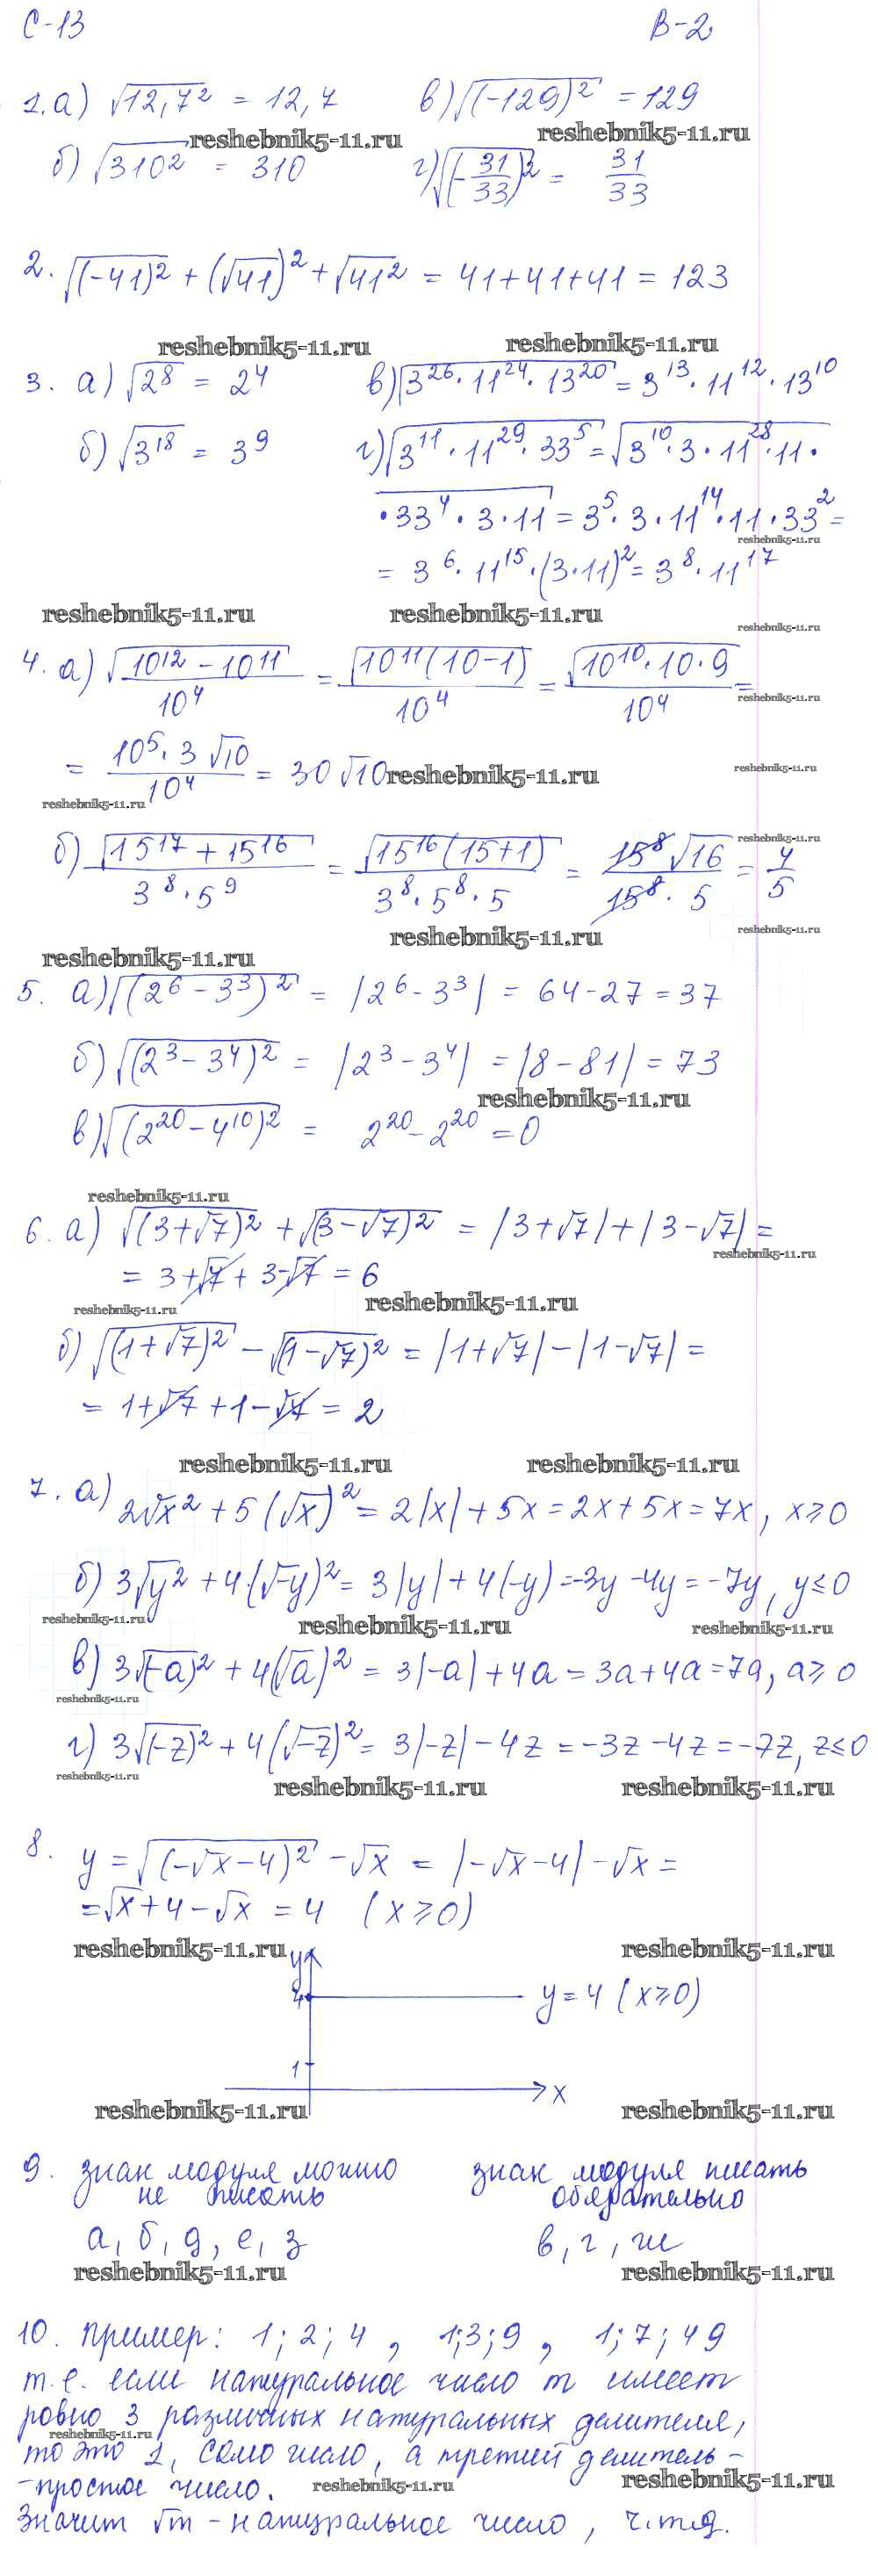 С-13 В-2
1. а) √12,7² = 12,7 в) √(-129)² = 129
reshebnik5-11.ru reshebnik5-11.ru
б) √310² = 310 г) √(-31/33)² = 31/33
2. √(-41)² + (√41)² + √41² = 41+41+41 = 123
reshebnik5-11.ru reshebnik5-11.ru
3. а) √2⁸ = 2⁴ в) √3²⁶·11²⁴·13²⁰ = 3¹³·11¹²·13¹⁰
б) √3¹⁸ = 3⁹ г) √3¹¹·11²⁹·33⁵ = √3¹⁰·3·11²⁸·11·
·33⁴·3·11 = 3⁵·3·11¹⁴·11·33² =
reshebnik5-11.ru
= 3⁶·11¹⁵·(3·11)² = 3⁸·11¹⁷
reshebnik5-11.ru reshebnik5-11.ru reshebnik5-11.ru
4. а) √10¹²-10¹¹/10⁴ = √10¹¹(10-1)/10⁴ = √10¹⁰·10·9/10⁴ =
reshebnik5-11.ru
= 10⁵·3√10/10⁴ = 30√10 reshebnik5-11.ru reshebnik5-11.ru
reshebnik5-11.ru
reshebnik5-11.ru
б) √15¹⁷+15¹⁶/3⁸·5⁹ = √15¹⁶(15+1)/3⁸·5⁸·5 = 15⁸√16/15⁸·5 = 4/5
reshebnik5-11.ru reshebnik5-11.ru
reshebnik5-11.ru
5. а) √(2⁶-3³)² = |2⁶-3³| = 64-27 = 37
б) √(2³-3⁴)² = |2³-3⁴| = |8-81| = 73
reshebnik5-11.ru
в) √(2²⁰-4¹⁰)² = 2²⁰-2²⁰ = 0
reshebnik5-11.ru
6. а) √(3+√7)² + √(3-√7)² = |3+√7|+|3-√7| =
reshebnik5-11.ru
= 3+√7+3-√7 = 6
reshebnik5-11.ru reshebnik5-11.ru
б) √(1+√7)² - √(1-√7)² = |1+√7|-|1-√7| =
= 1+√7+1-√7 = 2
reshebnik5-11.ru reshebnik5-11.ru
7. а) 2√x² + 5(√x)² = 2|x|+5x = 2x+5x = 7x, x≥0
б) 3√y² + 4·(√-y)² = 3|y|+4(-y) = -3y-4y = -7y, y≤0
reshebnik5-11.ru reshebnik5-11.ru reshebnik5-11.ru
в) 3√(-a)² + 4(√a)² = 3|-a|+4a = 3a+4a = 7a, a≥0
reshebnik5-11.ru
г) 3√(-z)² + 4(√-z)² = 3|-z|-4z = -3z-4z = -7z, z≤0
reshebnik5-11.ru
reshebnik5-11.ru reshebnik5-11.ru
8. y = √(-√x-4)² - √x = |-√x-4|-√x =
= √x+4-√x = 4 (x≥0)
reshebnik5-11.ru reshebnik5-11.ru
y
4 y=4 (x≥0)
1
x
reshebnik5-11.ru reshebnik5-11.ru
9. знак модуля можно знак модуля писать
не писать обязательно
а, б, д, е, з в, г, ж
reshebnik5-11.ru reshebnik5-11.ru
10. Пример: 1; 2; 4, 1; 3; 9, 1; 7; 49
т.е. если натуральное число m имеет
ровно 3 различных натуральных делителя,
reshebnik5-11.ru
то это 1, само число, а третий делитель-
-простое число.
reshebnik5-11.ru reshebnik5-11.ru
Значит √m - натуральное число, ч.т.д.